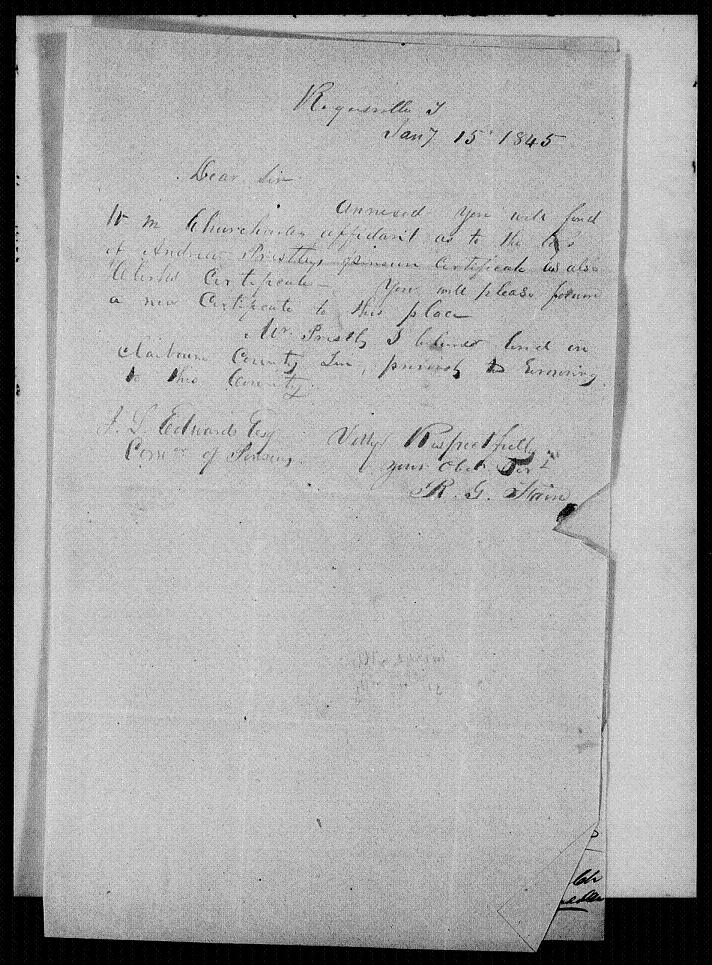 Rogersville T
Jany 15 1845
Dear Sir
Annexed you will find
W m Churchman affidavit as to the loss
of Andrew Prestlys pinsion Certificate as also
Clerks Certificate — You will please forward
a new Certificate to this place
Mr. Prestly I believe lived in
Claiborne County Ten, previously to removing
to this County.
J. L. Edwards Esq
Comr of Pensions
Very Respectfully
your Obt Sert
R. G.